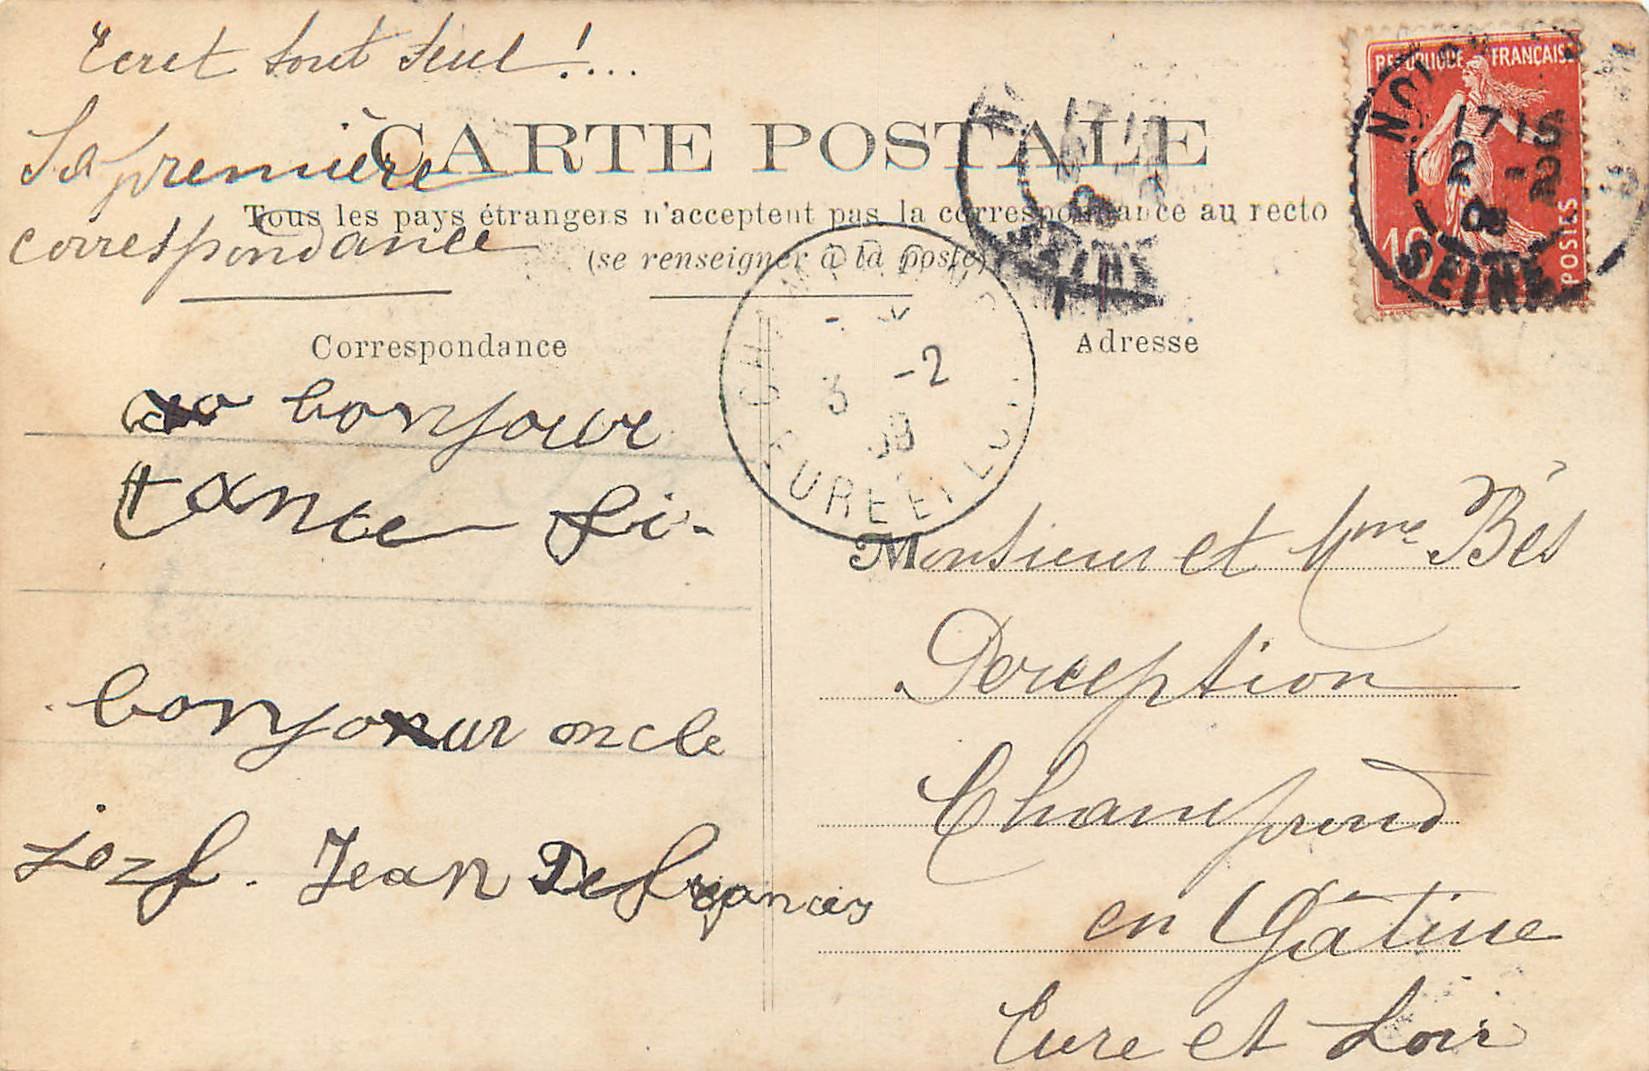 Ecrit tout seul !...
Sa première
correspondance
CARTE POSTALE
Tous les pays étrangers n'acceptent pas la correspondance au recto
(se renseigner à la poste)
Correspondance
Adresse
RÉPUBLIQUE FRANÇAISE
10
POSTES
17 15
2 -2
SEINE
3 -2
09
EURE ET LOIR
bonjour
tante fi-
bonjour oncle
jozf. Jean Defrances
Monsieur et Mme Bès
Perception
Champrond
en Gâtine
Eure et Loir